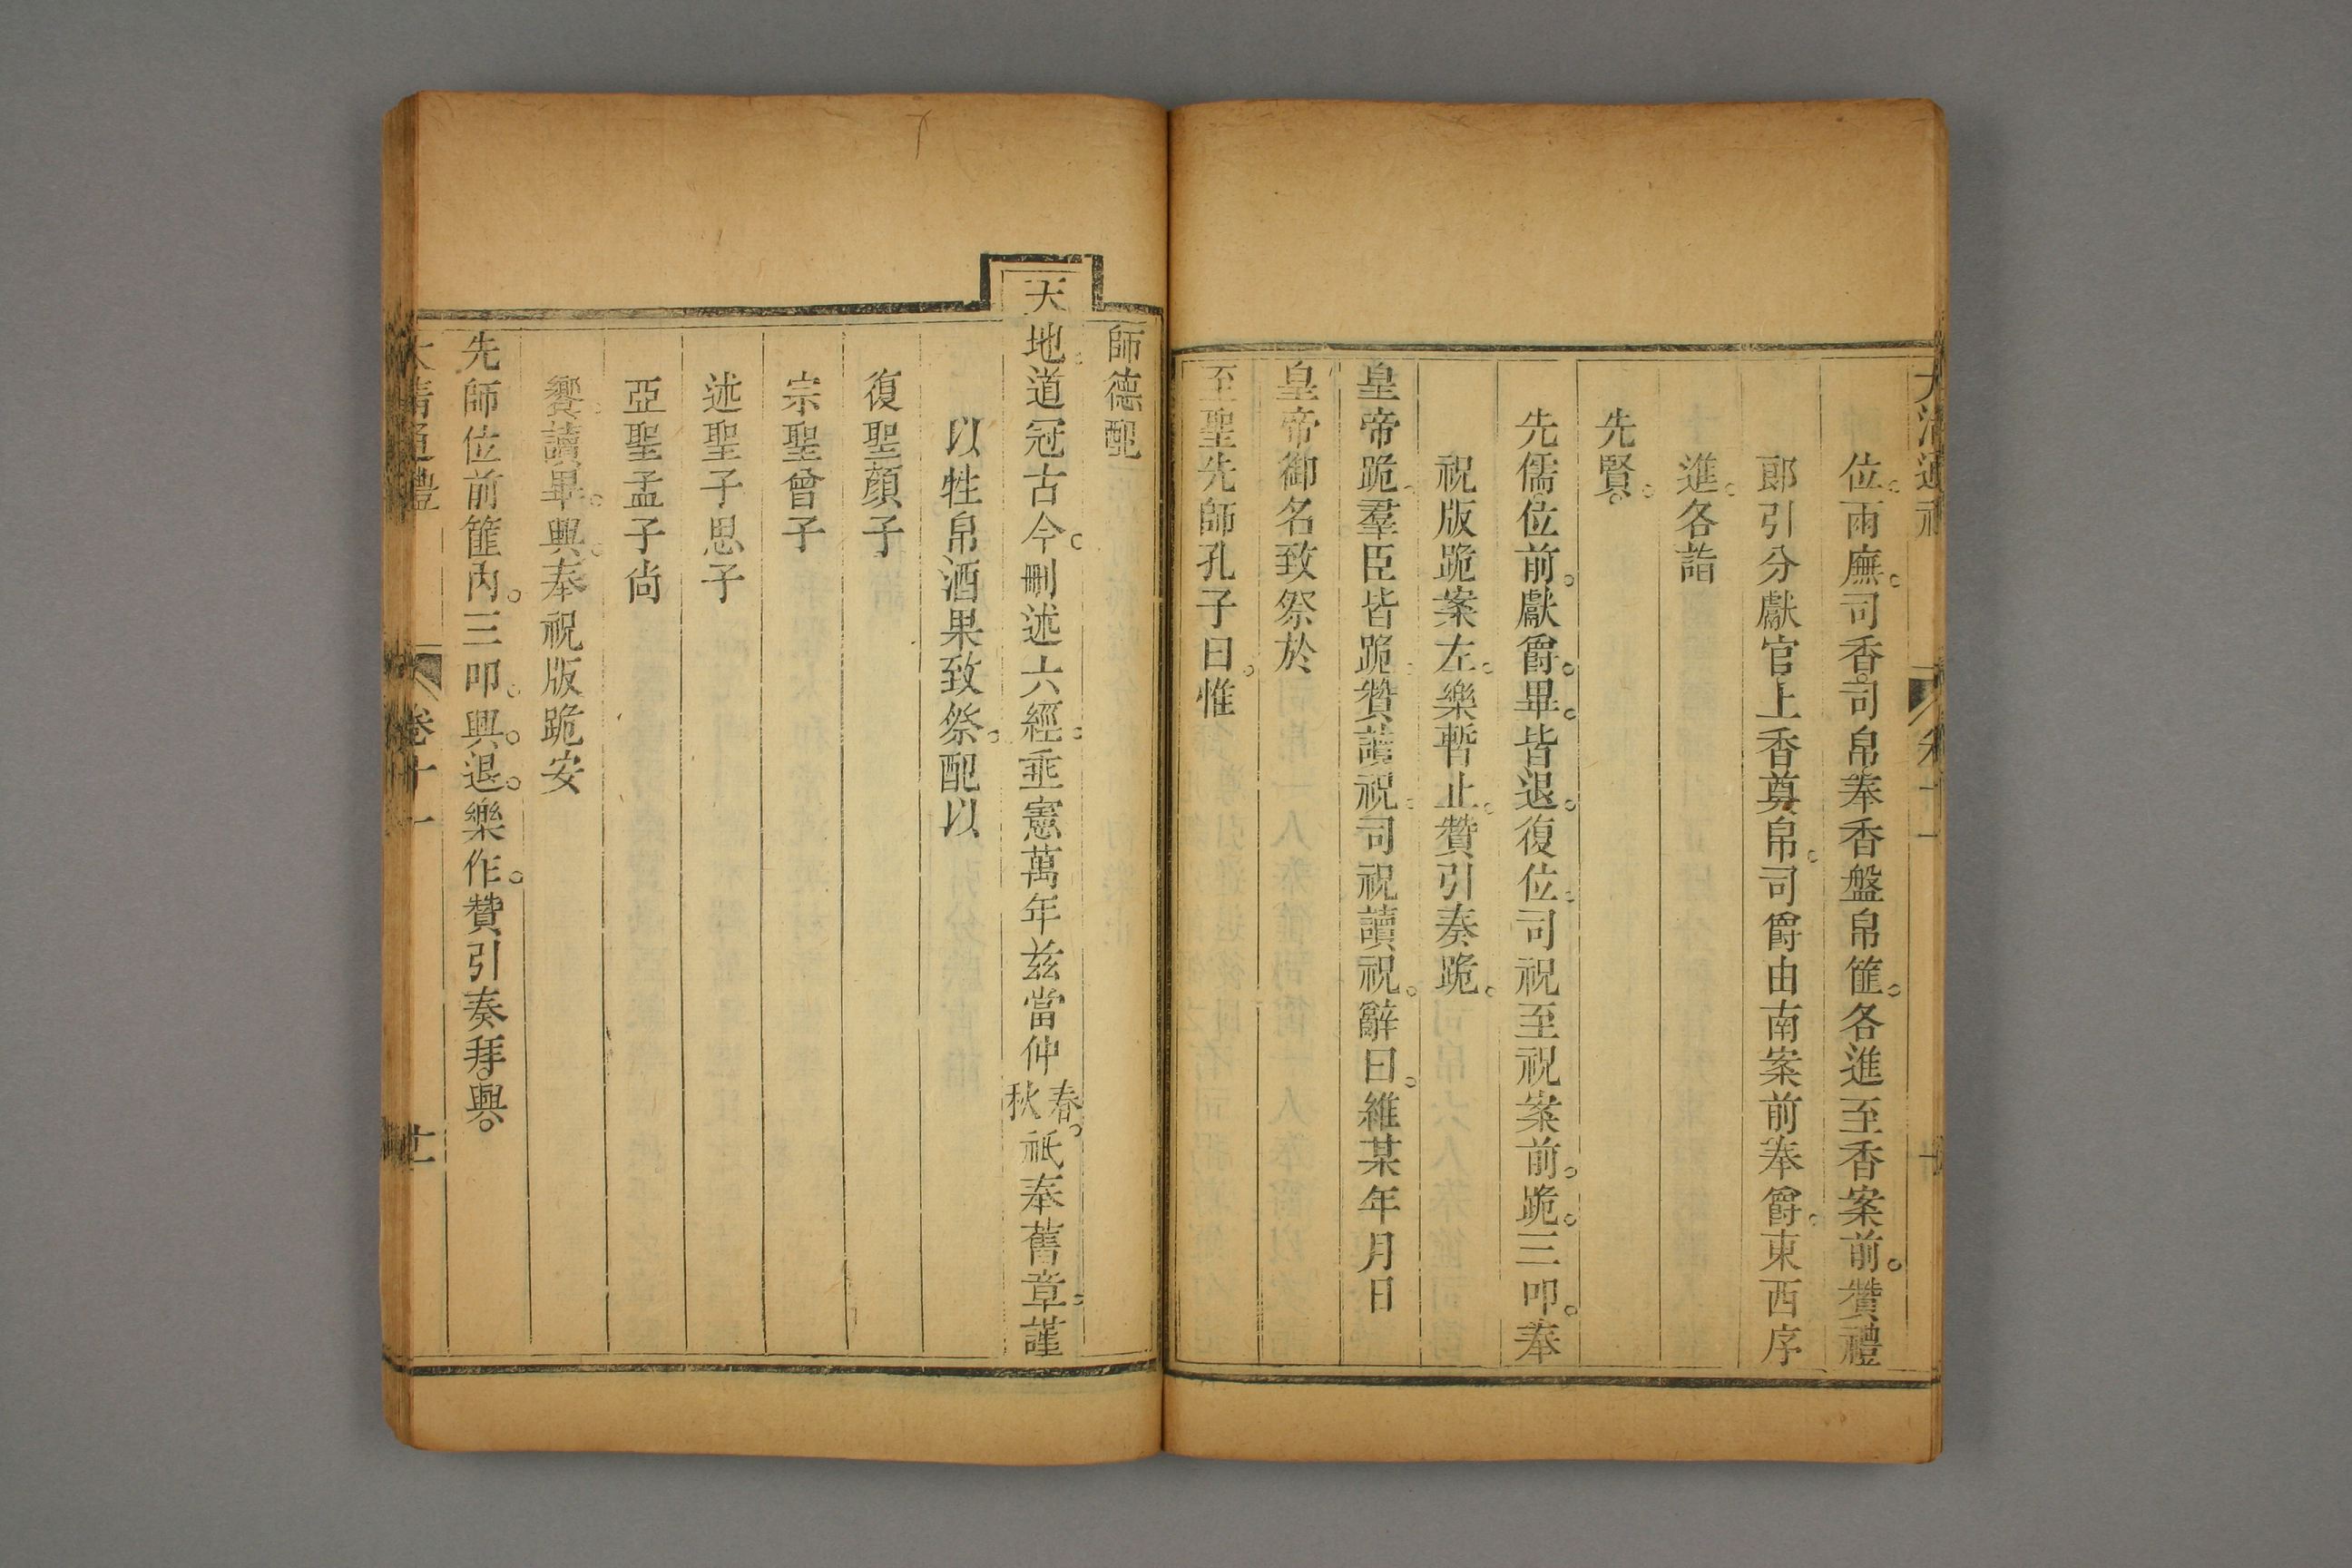 位。兩廡。司香。司帛奉香盤帛篚。各進至香案前。贊禮
郎引分獻官上香奠帛。司爵由南案前奉爵。東西序
進。各詣
先賢。
先儒位前。獻爵。畢。皆退。復位。司祝至祝案前。跪。三叩。奉
祝版跪案左。樂暫止。贊引奏跪。
皇帝跪。羣臣皆跪。贊讀祝。司祝讀祝。辭曰。維某年月日
皇帝御名致祭於
至聖先師孔子曰。惟
師德配
天地。道冠古今。刪述六經。垂憲萬年兹當仲春秋。祗奉舊章。謹
以牲帛酒果致祭。配以
復聖顏子
宗聖曾子
述聖子思子
亞聖孟子尙
饗。讀畢。興。奉祝版跪安
先師位前篚內。三叩。興。退。樂作。贊引奏拜。興。
大淸通禮 卷十一